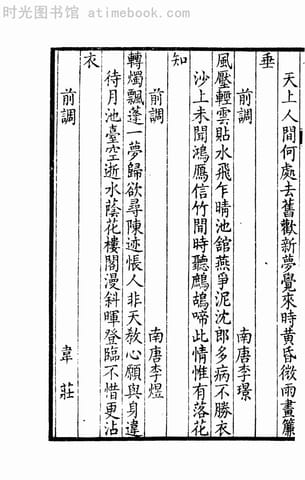 时光图书馆 atimebook.com
天上人間何處去舊歡新夢覺來時黄昏微雨畫簾
垂
前調　南唐李璟
風壓輕雲貼水飛乍晴池舘燕爭泥沈郎多病不勝衣
沙上未聞鴻鴈信竹間時聽鷓鴣啼此情惟有落花
知
前調　南唐李煜
轉燭飄蓬一夢歸欲尋陳迹悵人非天教心願與身違
待月池臺空逝水蔭花樓閣漫斜暉登臨不惜更沾
衣
前調　韋莊